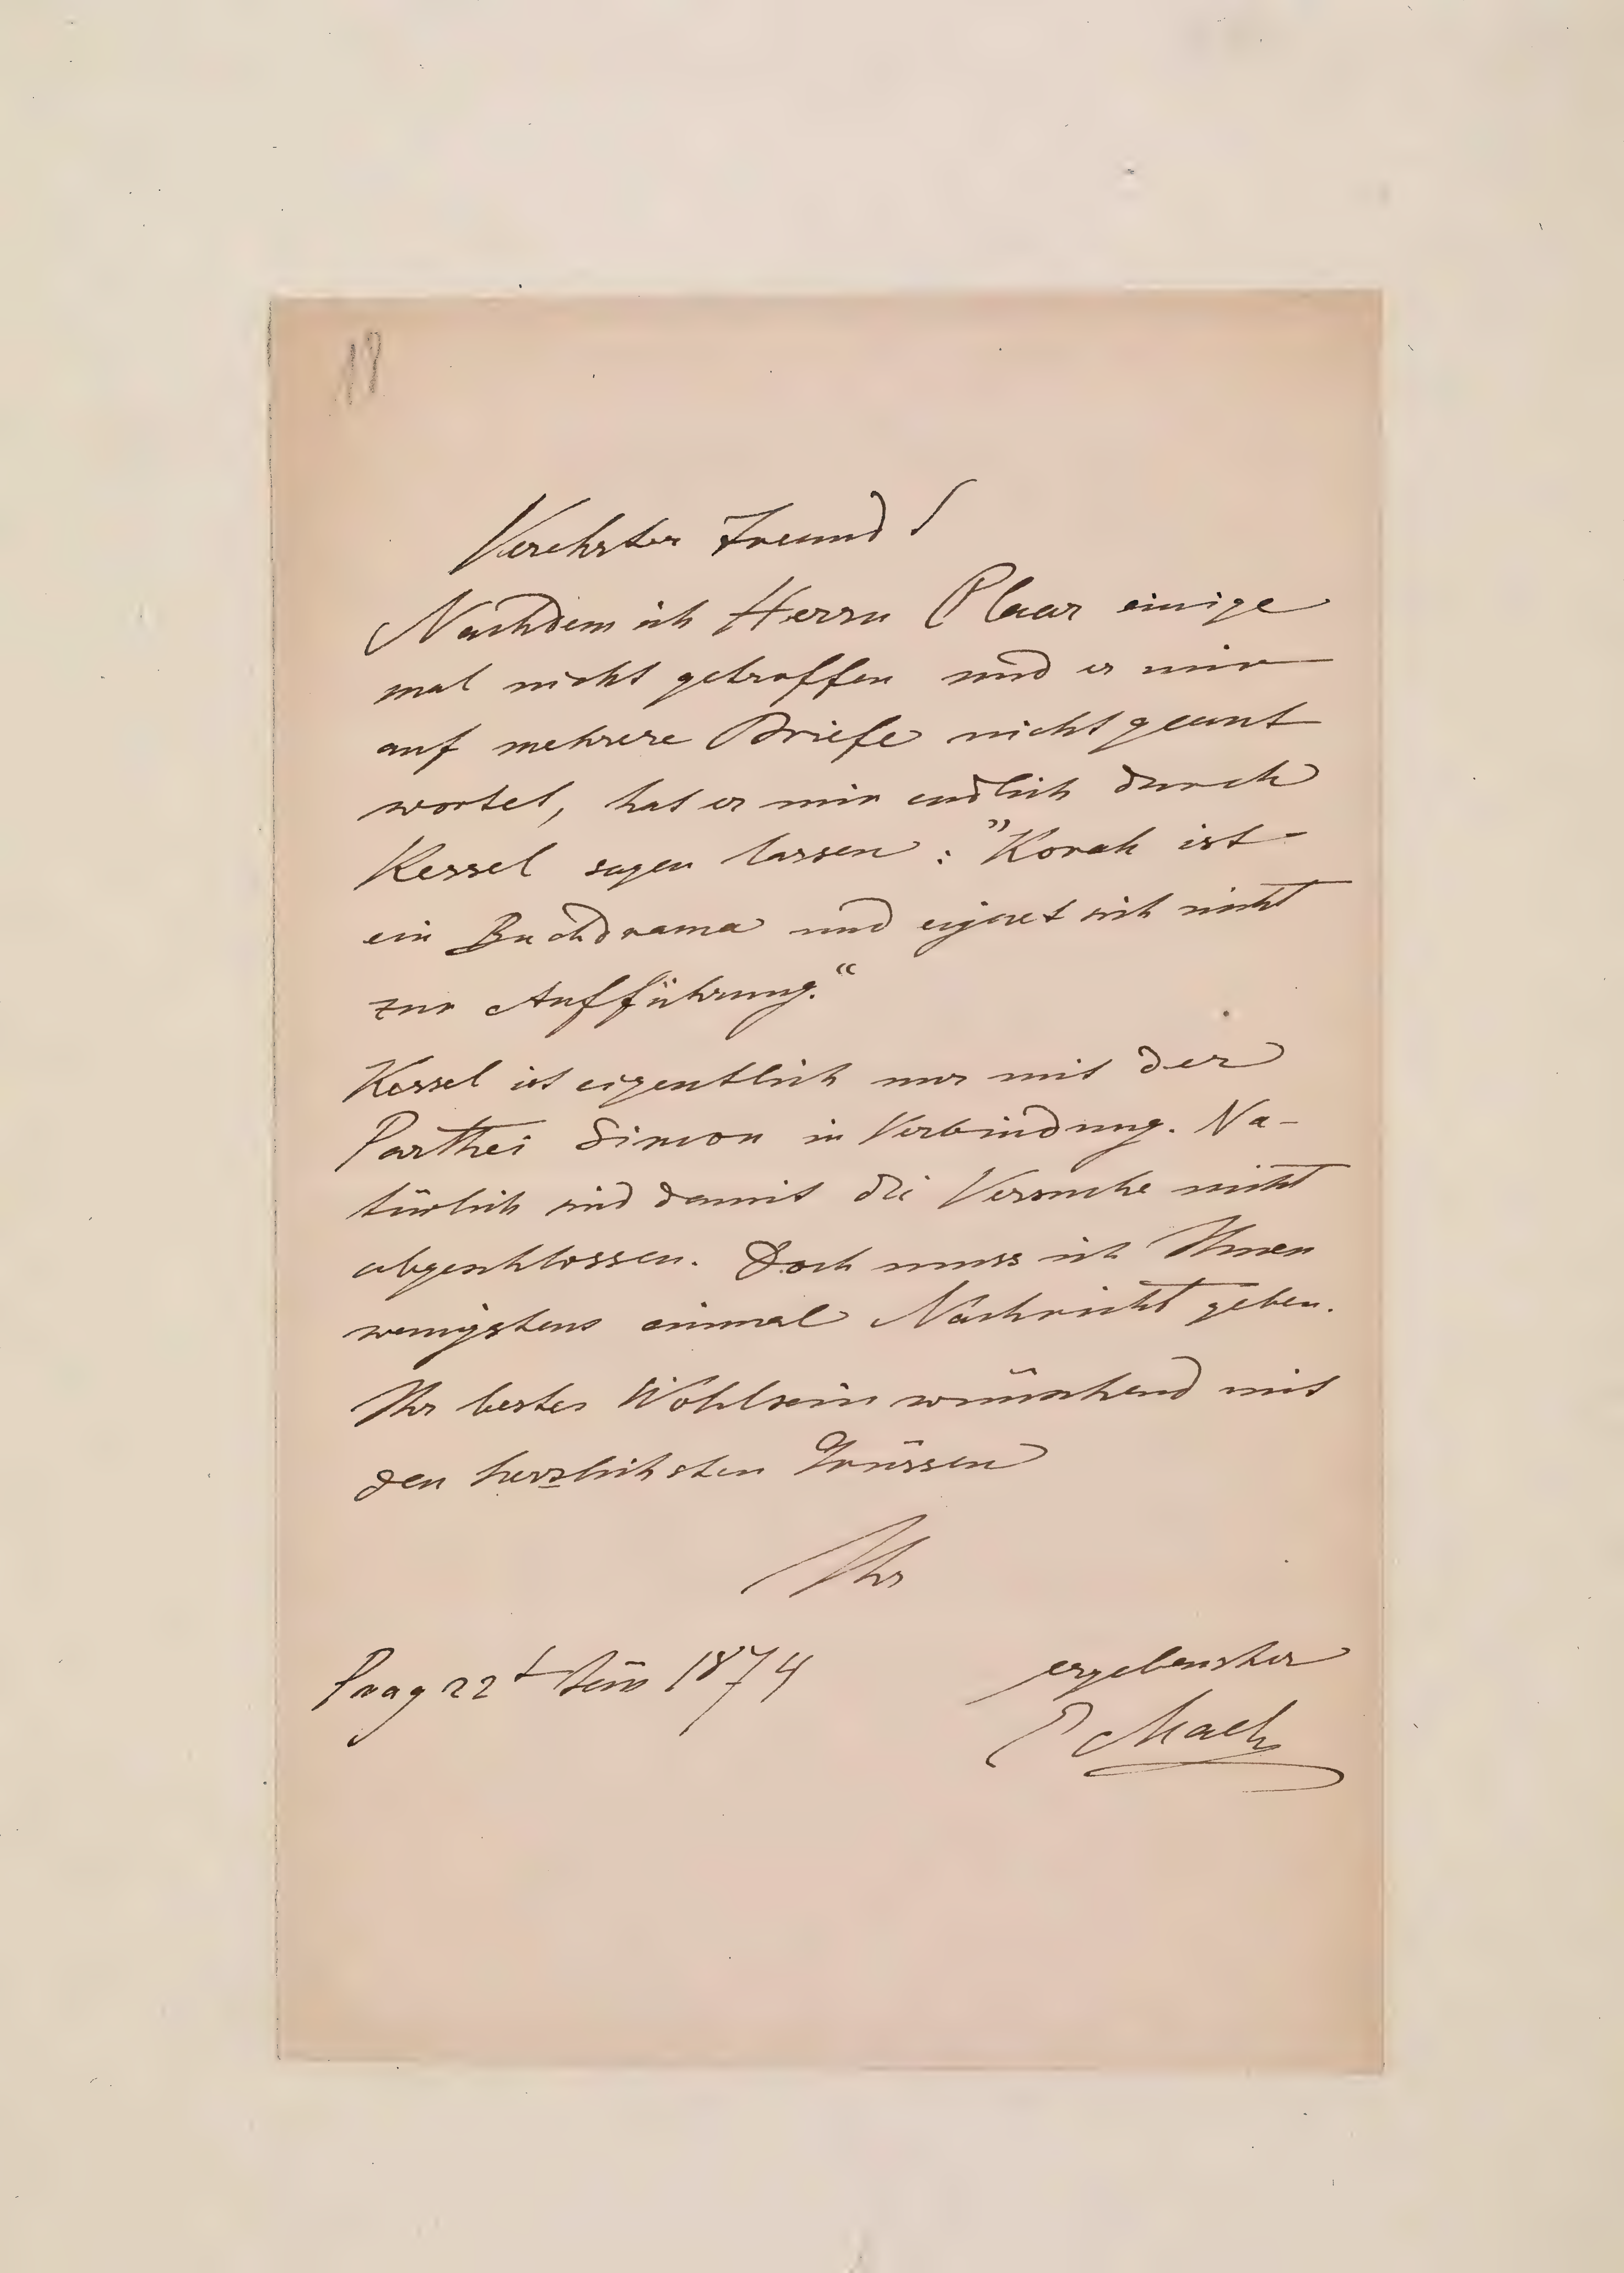 18
Verehrter Freund!
Nachdem ich Herrn Klaar einige
mal nicht getroffen und er mir
auf mehrere Briefe nicht geant
wortet, hat er mir endlich durch
Kessel sagen lassen: "Korah ist
ein Buchdrama und eignet sich nicht
zur Aufführung."
Kessel ist eigentlich nur mit der
Parthei Simon in Verbindung. Na-
türlich sind damit die Versuche nicht
abgeschlossen. Doch muss ich Ihnen
wenigstens einmal Nachricht geben.
Ihr bestes Wohlsein wünschend mit
den herzlichsten Grüssen
Ihr
ergebenster
Prag 22t 1874
E Mach